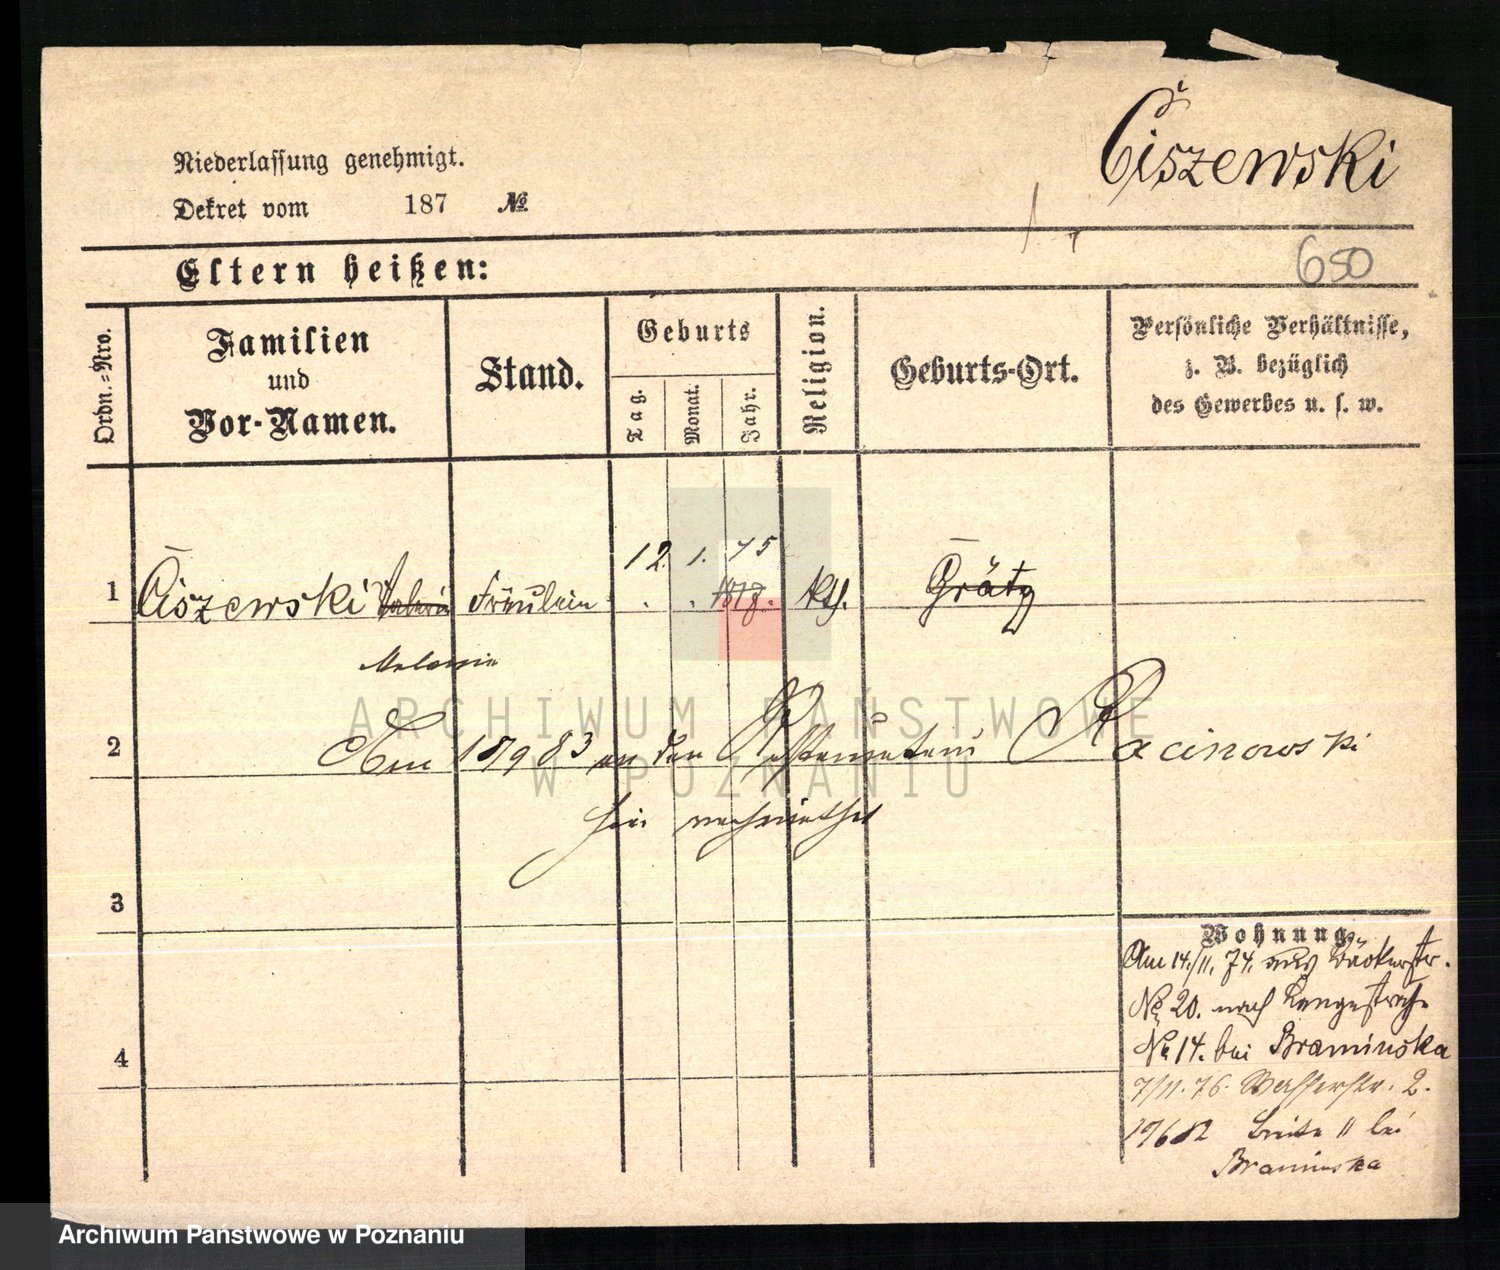 Čiszewski
Niederlassung genehmigt.
Dekret vom 187 №
650
Eltern heißen:
Ordn.=Nro.
Familien
und
Vor-Namen.
Stand.
Geburts
Tag.
Monat.
Jahr.
Religion.
Geburts-Ort.
Persönliche Verhältnisse,
z. B. bezüglich
des Gewerbes u. s. w.
12. 1. 75
1 Ciszewski Valerie Fräulein kth. Grätz
Melanie
2 Am 18/9 83 an den Restaurateur Racinowski
hier verheirathet
3
4
Wohnung.
Am 14./11. 74. aus Bäckerstr.
№ 20. nach Langestraße
№ 14. bei Braminska
7/11. 76. Wasserstr. 2.
19682 Breite 11 bei
Braminska
ARCHIWUM PAŃSTWOWE
W POZNANIU
Archiwum Państwowe w Poznaniu